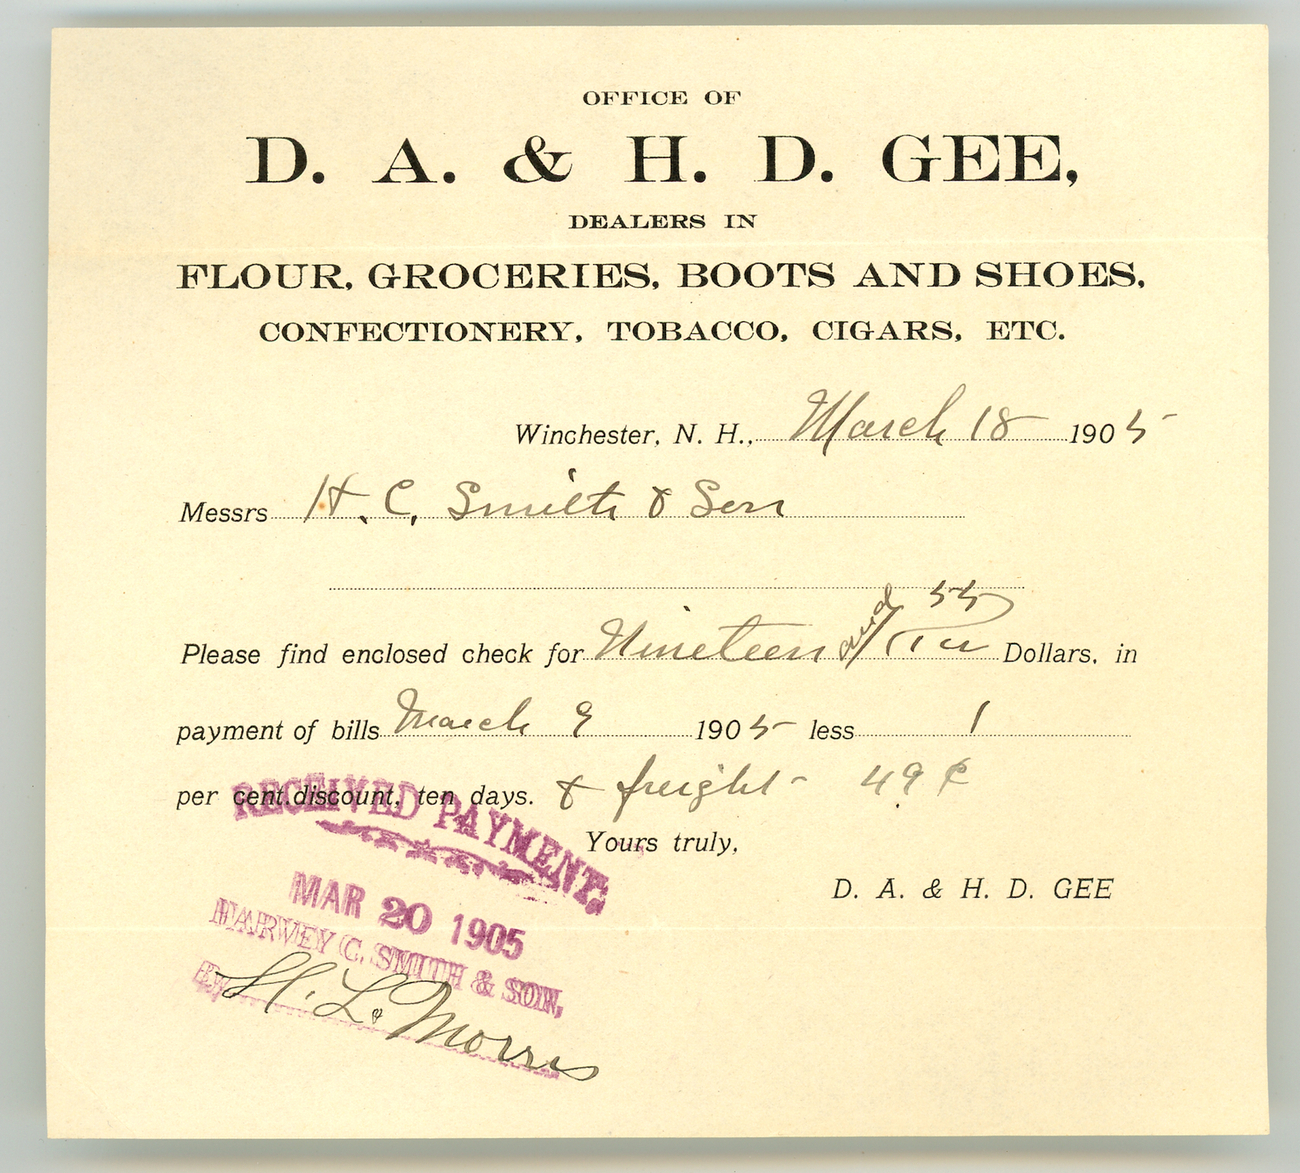 OFFICE OF
D. A. & H. D. GEE,
DEALERS IN
FLOUR, GROCERIES, BOOTS AND SHOES,
CONFECTIONERY, TOBACCO, CIGARS, ETC.
Winchester, N. H., March 18 1905
Messrs H. C. Smith & Son
Please find enclosed check for Nineteen and 55/100 Dollars, in
payment of bills March 9 1905 less 1
per cent. discount, ten days. & freight - 49 ¢
Yours truly,
D. A. & H. D. GEE
RECEIVED PAYMENT.
MAR 20 1905
HARVEY C. SMITH & SON,
By H. L. Morris